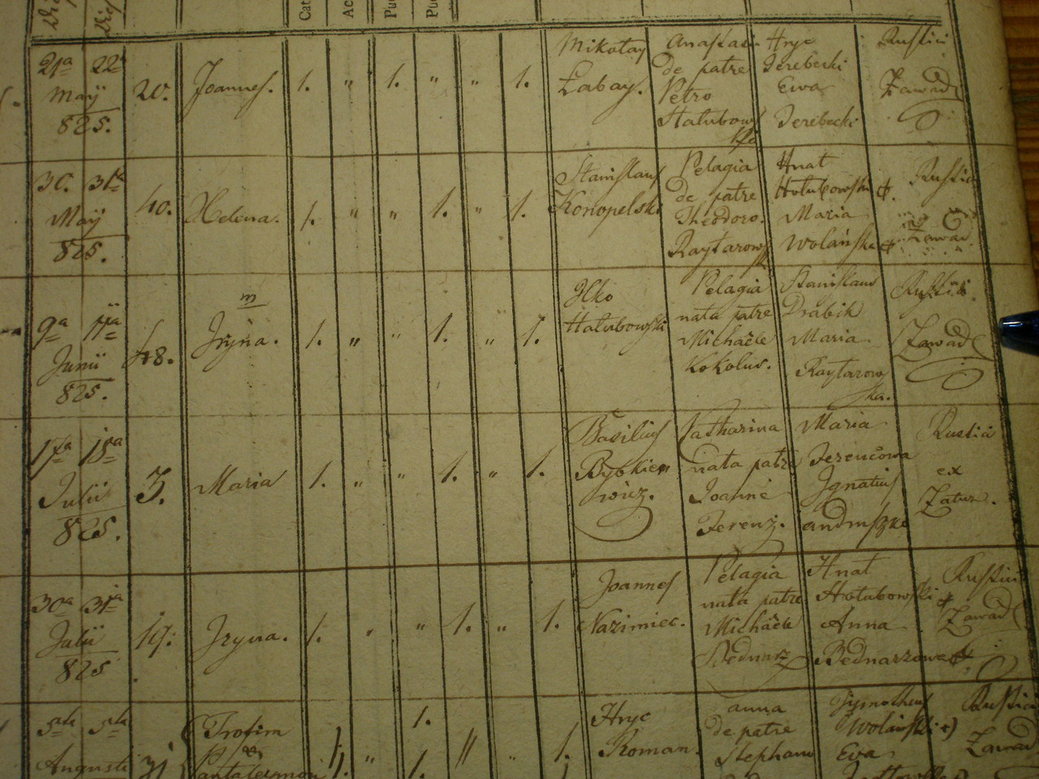 Cat
Ac
Pu
Pu
21a 22a
Maij
825.
20.
Joannes.
1. " 1. " " 1.
Mikołay
Łabay.
Anastasi
de patre
Petro
Hałubows
Hryc
Terebecki
Ewa
Terebecki
Rustici
Zawad
30. 31a
Maij
825.
40.
Helena.
1. " " 1. " 1.
Stanislaus
Konopelski
Pelagia
de patre
Theodoro.
Raytarows
Hnat
Hołubowski +.
Maria
Wolańska +
Rustici
Zawad
9a 11a
Junii
825.
48.
m
Iryna.
1. " " 1. " 1.
Ilko
Hałubowski
Pelagia
nata patre
Michaele
Kokolus.
Stanislaus
Drabik
Maria
Raytarow
ska.
Rustici.
Zawad
17a 18a
Julii
825.
3.
Maria
1. " " 1. " 1.
Basilius
Bybkie
wicz.
Catharina
nata patre
Joanne
Ferenz.
Maria
Ferencowa
Ignatius
Andruszke
Rustici
ex
Zatur.
30a 31a
Julii
825
19.
Iryna.
1. " " 1. " 1.
Joannes
Nazimiec.
Pelagia
nata patre
Michaele
Bednarz
Hnat
Hołabowski +
Anna
Bednarzowa +.
Rustici
Zawad
5ta 5ta
Augusti
31
Trofim
Pantalemon
1.
1. " 1. " 1.
Hryc
Roman.
Anna
de patre
Stephano
Tymotheus
Wolański +)
Eva
Rustici
Zawad